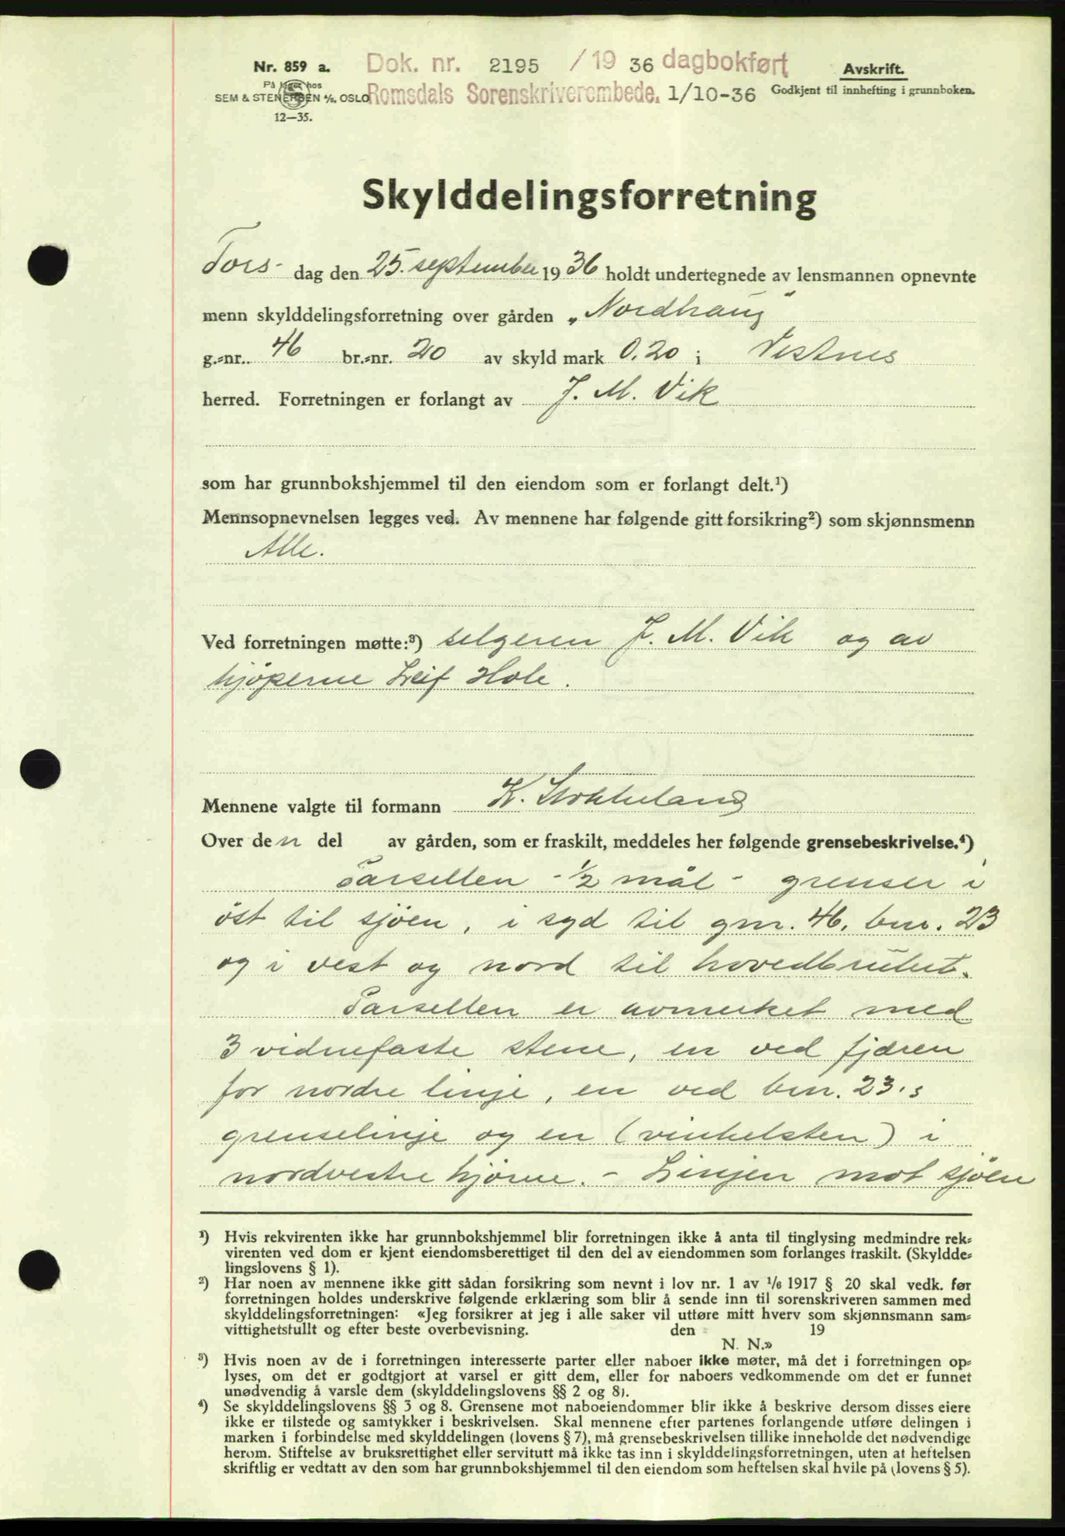 Nr. 859 a.
På lager hos
SEM & STENERSEN A/S, OSLO
12—35.
Dok. nr. 2195 /19 36 dagbokført
Romsdals Sorenskriverembede, 1/10-36
Avskrift.
Godkjent til innhefting i grunnboken.
Skylddelingsforretning
Tors- dag den 25. september 19 36 holdt undertegnede av lensmannen opnevnte
menn skylddelingsforretning over gården „Nordhaug"
g.-nr. 46 br.-nr. 20 av skyld mark 0,20 i Vestnes
herred. Forretningen er forlangt av J. M. Vik
som har grunnbokshjemmel til den eiendom som er forlangt delt.¹)
Mennsopnevnelsen legges ved. Av mennene har følgende gitt forsikring²) som skjønnsmenn
Alle.
Ved forretningen møtte:³) selgeren J. M. Vik og av
kjøperne Leif Hole.
Mennene valgte til formann K. Stokkeland
Over den del av gården, som er fraskilt, meddeles her følgende grensebeskrivelse.⁴)
Parsellen - 1/2 mål - grenser i
øst til sjøen, i syd til gnr. 46, bnr. 23
og i vest og nord til hovedbruket.
Parsellen er avmerket med
3 vidnefaste stene, en ved fjæren
for nordre linje, en ved bnr. 23's
grenselinje og en (vinkelsten) i
nordvestre hjørne. - Linjen mot sjøen
¹) Hvis rekvirenten ikke har grunnbokshjemmel blir forretningen ikke å anta til tinglysing medmindre rek-
virenten ved dom er kjent eiendomsberettiget til den del av eiendommen som forlanges fraskilt. (Skyldde-
lingslovens § 1).
²) Har noen av mennene ikke gitt sådan forsikring som nevnt i lov nr. 1 av 1/6 1917 § 20 skal vedk. før
forretningen holdes underskrive følgende erklæring som blir å sende inn til sorenskriveren sammen med
skylddelingsforretningen: «Jeg forsikrer at jeg i alle saker vil utføre mitt hverv som skjønnsmann sam-
vittighetsfullt og efter beste overbevisning. den 19
N. N.»
³) Hvis noen av de i forretningen interesserte parter eller naboer ikke møter, må det i forretningen op-
lyses, om det er godtgjort at varsel er gitt dem, eller for naboers vedkommende om det er funnet
unødvendig å varsle dem (skylddelingslovens §§ 2 og 8).
⁴) Se skylddelingslovens §§ 3 og 8. Grensene mot naboeiendommer blir ikke å beskrive dersom disses eiere
ikke er tilstede og samtykker i beskrivelsen. Skal mennene efter partenes forlangende utføre delingen i
marken i forbindelse med skylddelingen (lovens § 7), må grensebeskrivelsen tillike inneholde det nødvendige
herom. Stiftelse av bruksrettighet eller servitutt må ikke tas inn i skylddelingsforretningen, uten at heftelsen
skriftlig er vedtatt av den som har grunnbokshjemmel til den eiendom som heftelsen skal hvile på (lovens § 5).